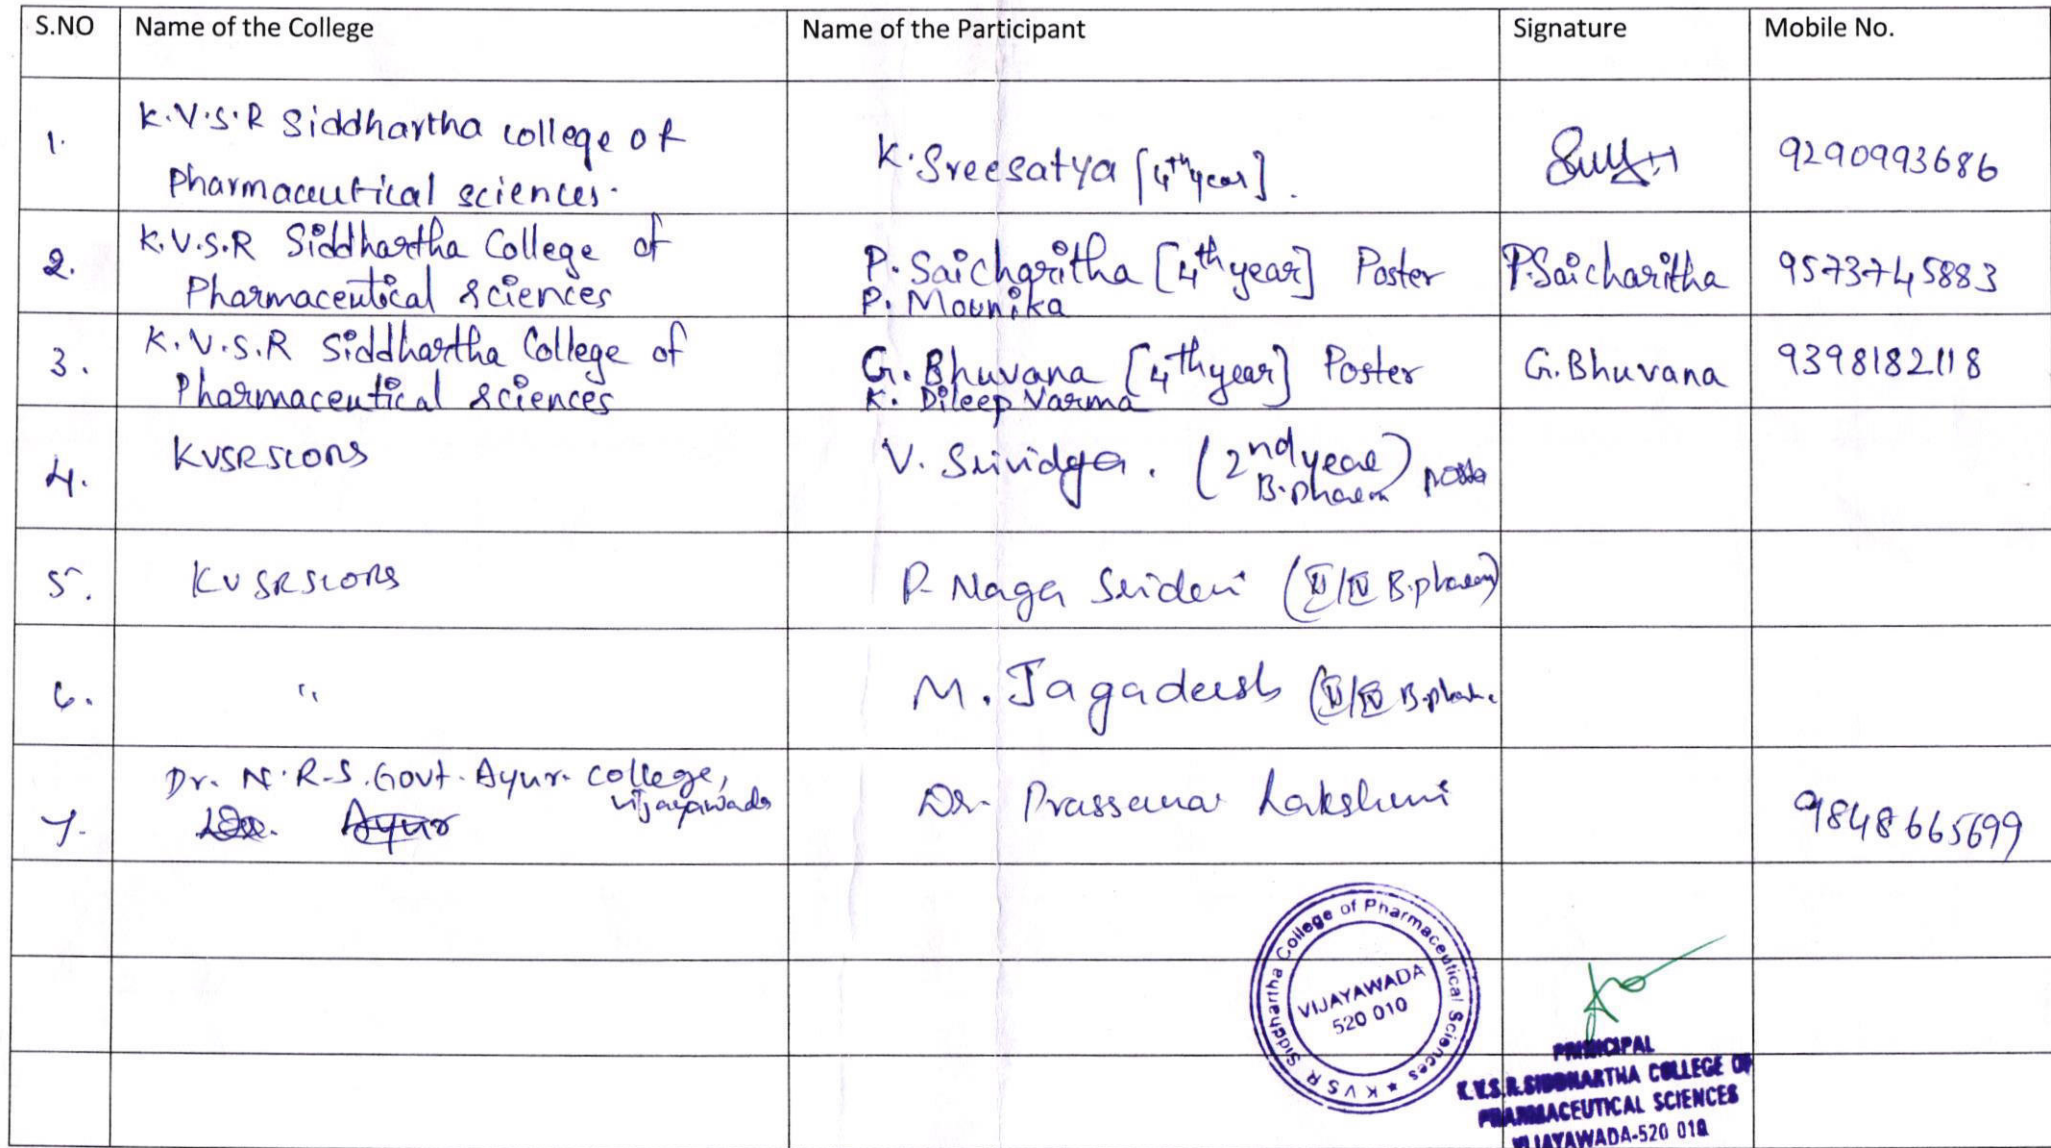 S.NO Name of the College Name of the Participant Signature Mobile No.
1. K.V.S.R Siddhartha college of
Pharmaceutical sciences.
K. Sreesatya [4th year].
9290993686
2. K.V.S.R Siddhartha College of
Pharmaceutical sciences
P. Saicharitha [4th year] Poster
P. Mounika
P. Saicharitha
9573745883
3. K.V.S.R Siddhartha College of
Pharmaceutical sciences
G. Bhuvana [4th year] Poster
K. Dileep Varma
G. Bhuvana
9398182118
4. KVSRSCOPS
V. Srividya. (2nd year)
B.pharm
5. KVSRSCOPS
P. Naga Sridevi (II/IV B.pharm)
6. "
M. Jagadeesh (II/IV B.pharm
7. Dr. N.R.S. Govt. Ayur. College,
Vijayawada
Ayur
Dr. Prassanna Lakshmi
9848665699
KVSR Siddhartha College of Pharmaceutical Sciences ★
VIJAYAWADA
520 010
PRINCIPAL
K.V.S.R. SIDDHARTHA COLLEGE OF
PHARMACEUTICAL SCIENCES
VIJAYAWADA-520 010